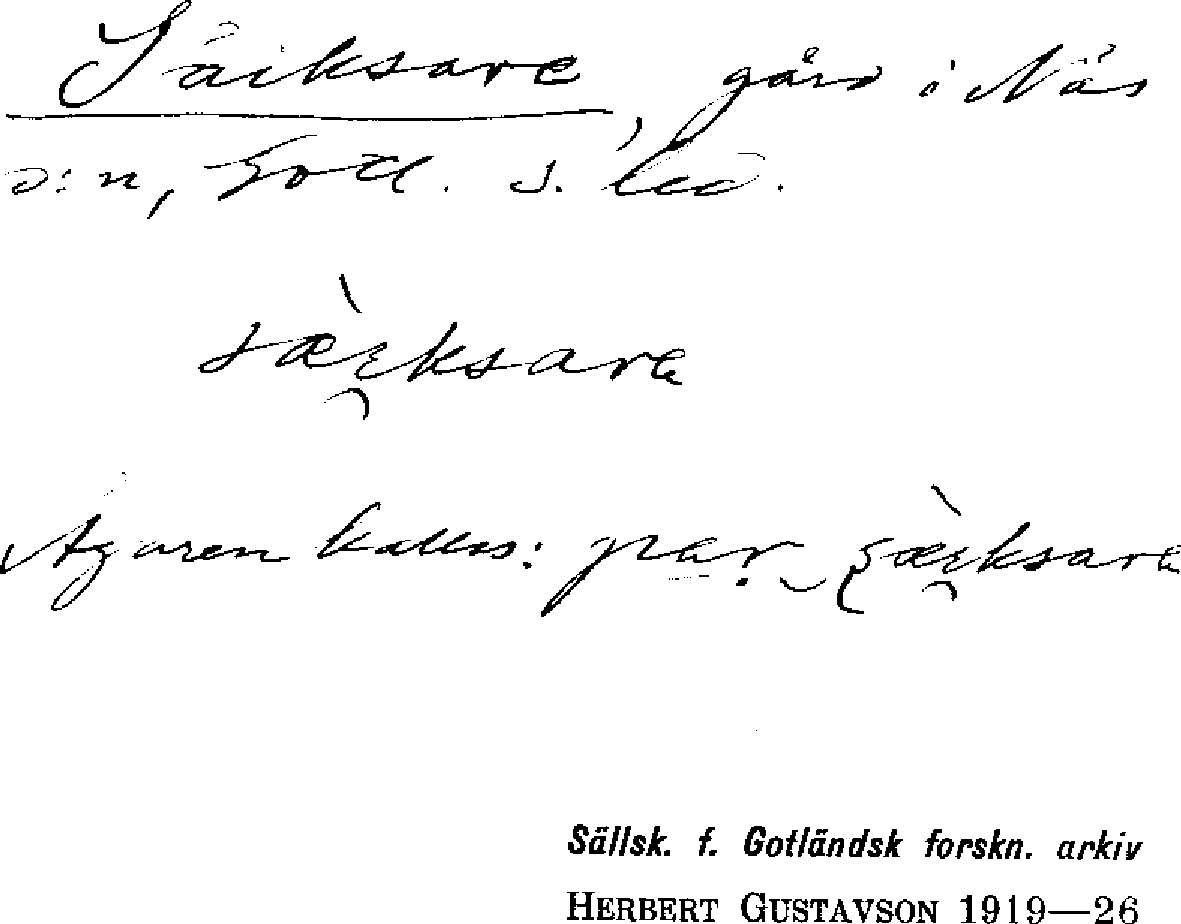 Säiksare, gård i Näs
s:n, Gotl. s. hd.
sæ̀i̯ksara
Ägaren kallas: per sæ̀i̯ksara
Sällsk. f. Gotländsk forskn. arkiv
HERBERT GUSTAVSON 1919—26